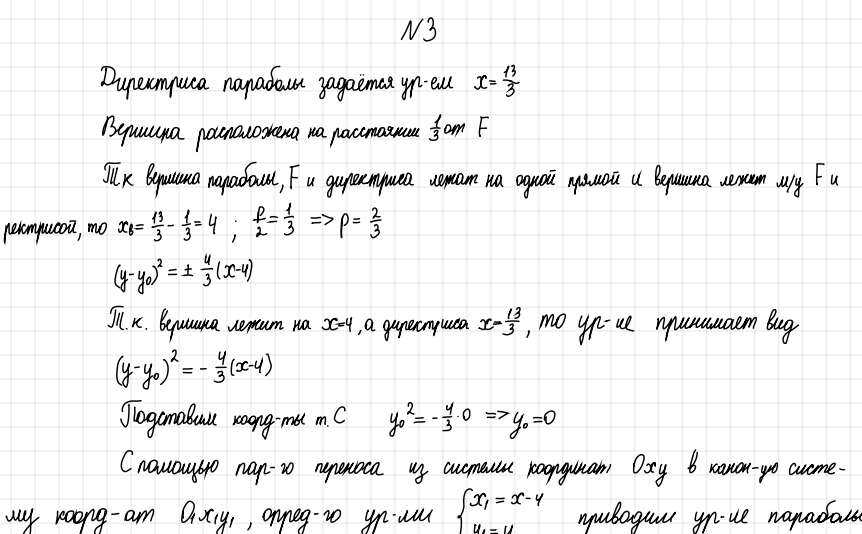 N3
Директриса параболы задаётся ур-ем x = 13/3
Вершина расположена на расстоянии 1/3 от F
Т к вершина параболы, F и директриса лежат на одной прямой и вершина лежит м/у F и
ректрисой, то xв = 13/3 - 1/3 = 4 ; p/2 = 1/3 => p = 2/3
(y-y₀)² = ± 4/3 (x-4)
Т.к. вершина лежит на x=4, а директриса x = 13/3, то ур-ие принимает вид
(y-y₀)² = - 4/3 (x-4)
Подставим коорд-ты т. C y₀² = - 4/3 · 0 => y₀ = 0
С помощью пар-го переноса из системы координат Oxy в канон-ую систе-
му коорд-ат O₁x₁y₁, опред-го ур-ми { x₁ = x-4 приводим ур-ие параболы
y₁ = y